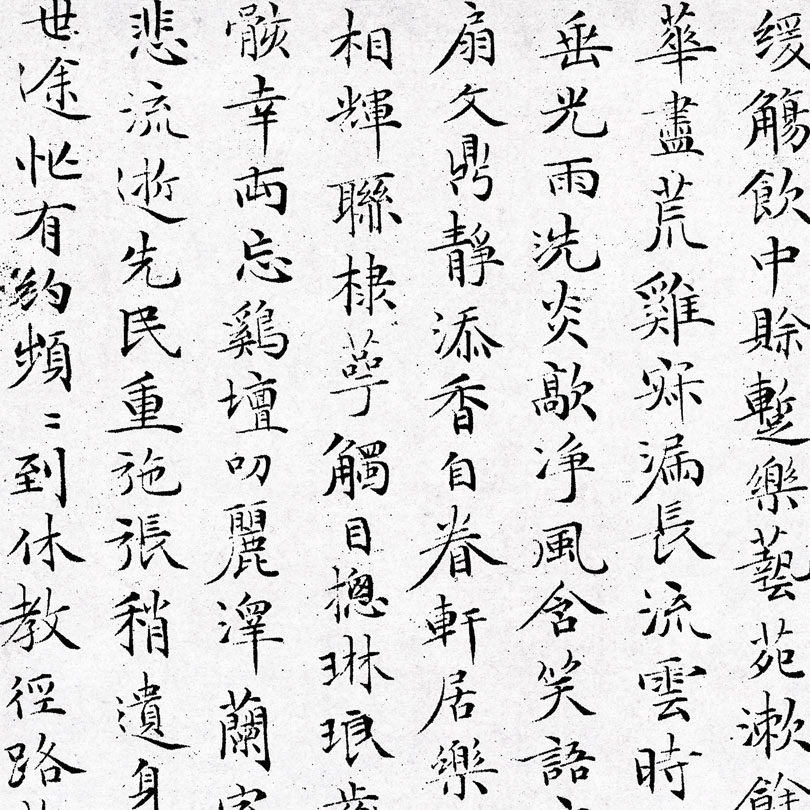 緩觴飲中賒蹔樂藝苑漱餘
華盡荒雞寐漏長流雲時
垂光雨洗炎歊净風含笑語
扇文鼎靜添香自眷軒居樂
相輝聯棣萼觸目摠琳琅
骸幸両忘鷄壇叨麗澤蘭室
悲流逝先民重施張稍遺身
世途忙有約頻〻到休教徑路